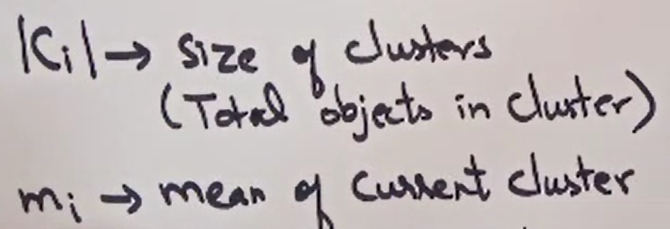 |Ci| → size of clusters
(Total objects in cluster)
mi → mean of current cluster